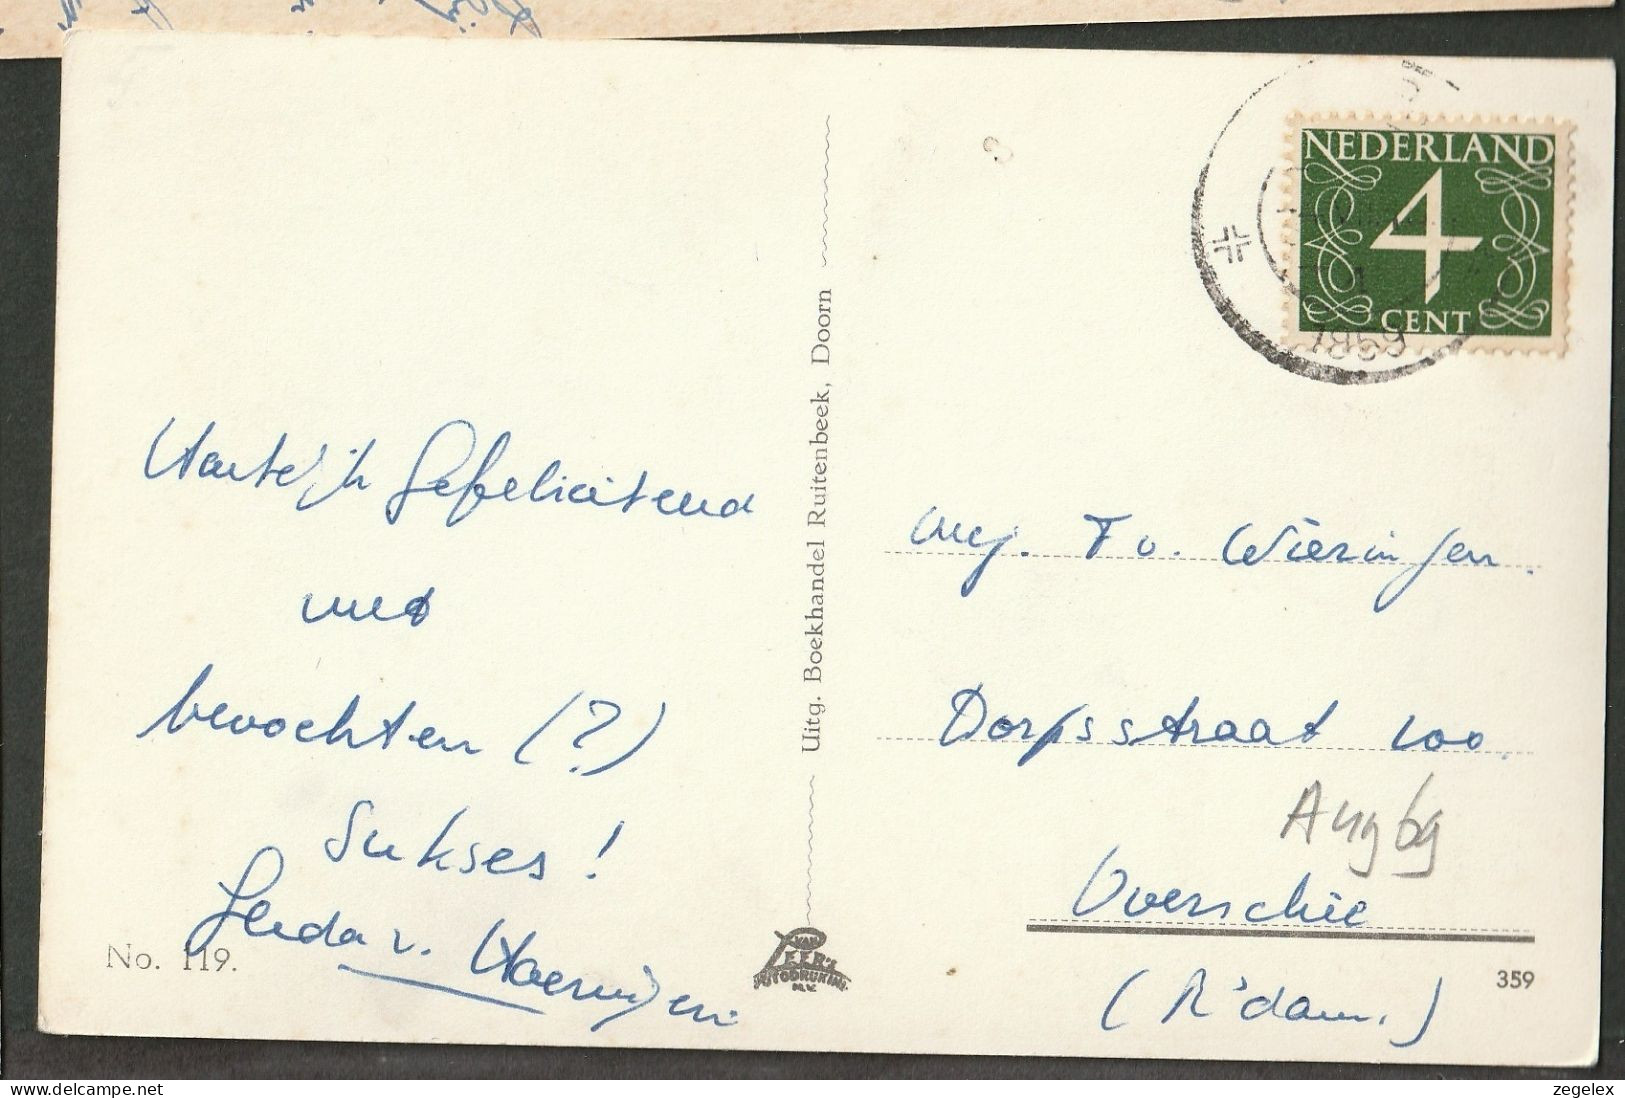 Hartelijk Gefeliciteerd
met
bevochten (?)
Sukses!
Gerda v. Haeringen
No. 119.
Uitg. Boekhandel Ruitenbeek, Doorn
VAN
LEER'S
FOTODRUKIND.
N.V.
NEDERLAND
4
CENT
1959
Mej. T v. Wieringen.
Dorpsstraat 100.
Overschie
(R'dam.)
359
zegelex